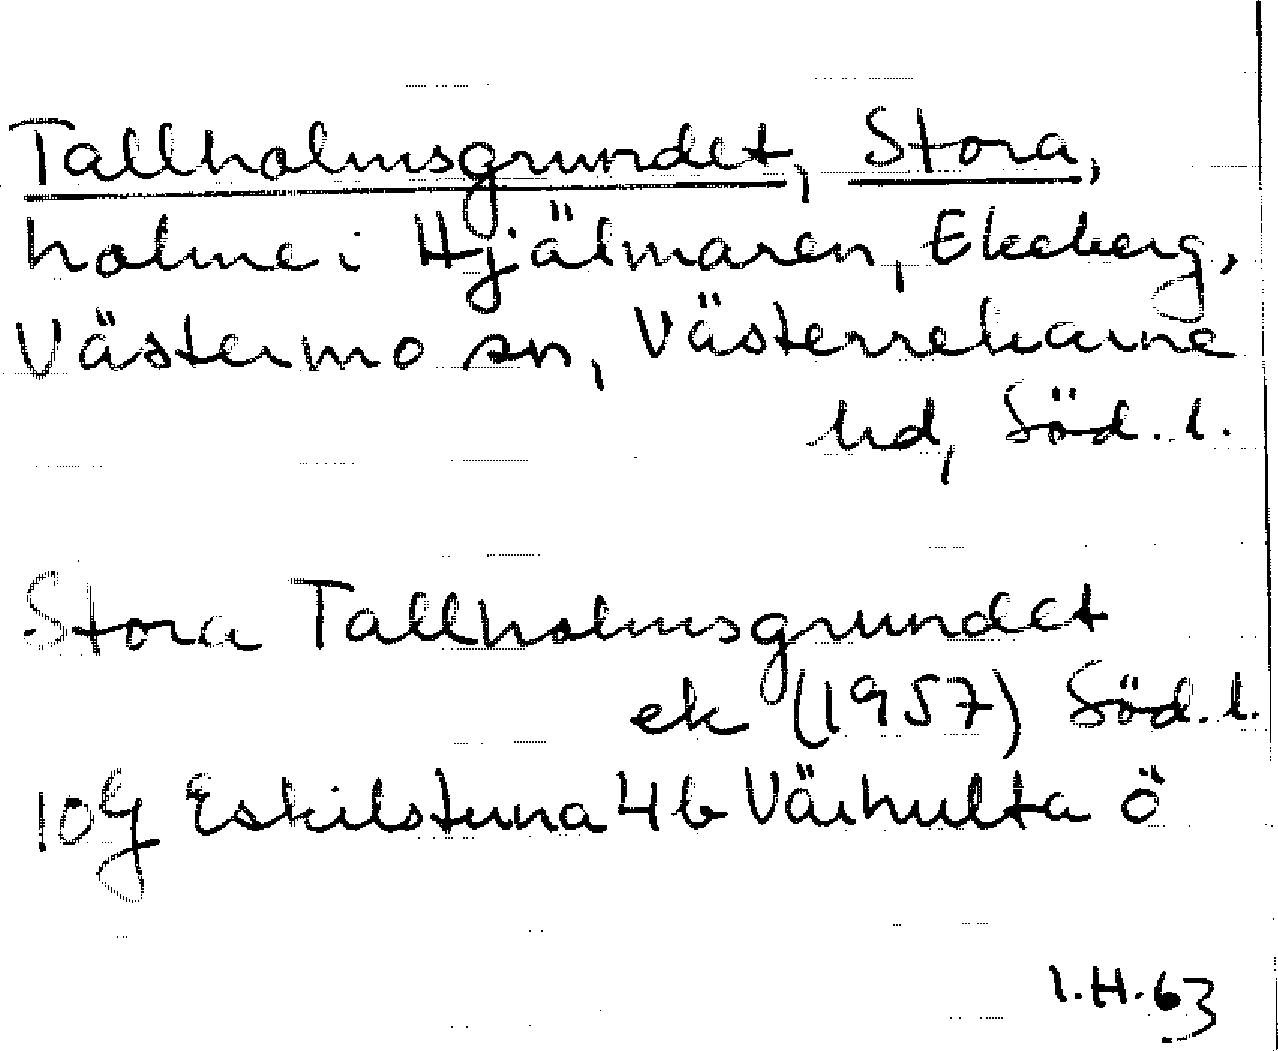 Tallholmsgrundet, Stora,
holme i Hjälmaren, Ekeberg,
Västermo sn, Västerrekarne
hd, Söd. l.
Stora Tallholmsgrundet
ek (1957) Söd. l.
10G Eskilstuna 4b Värhulta ö
I.H. 63